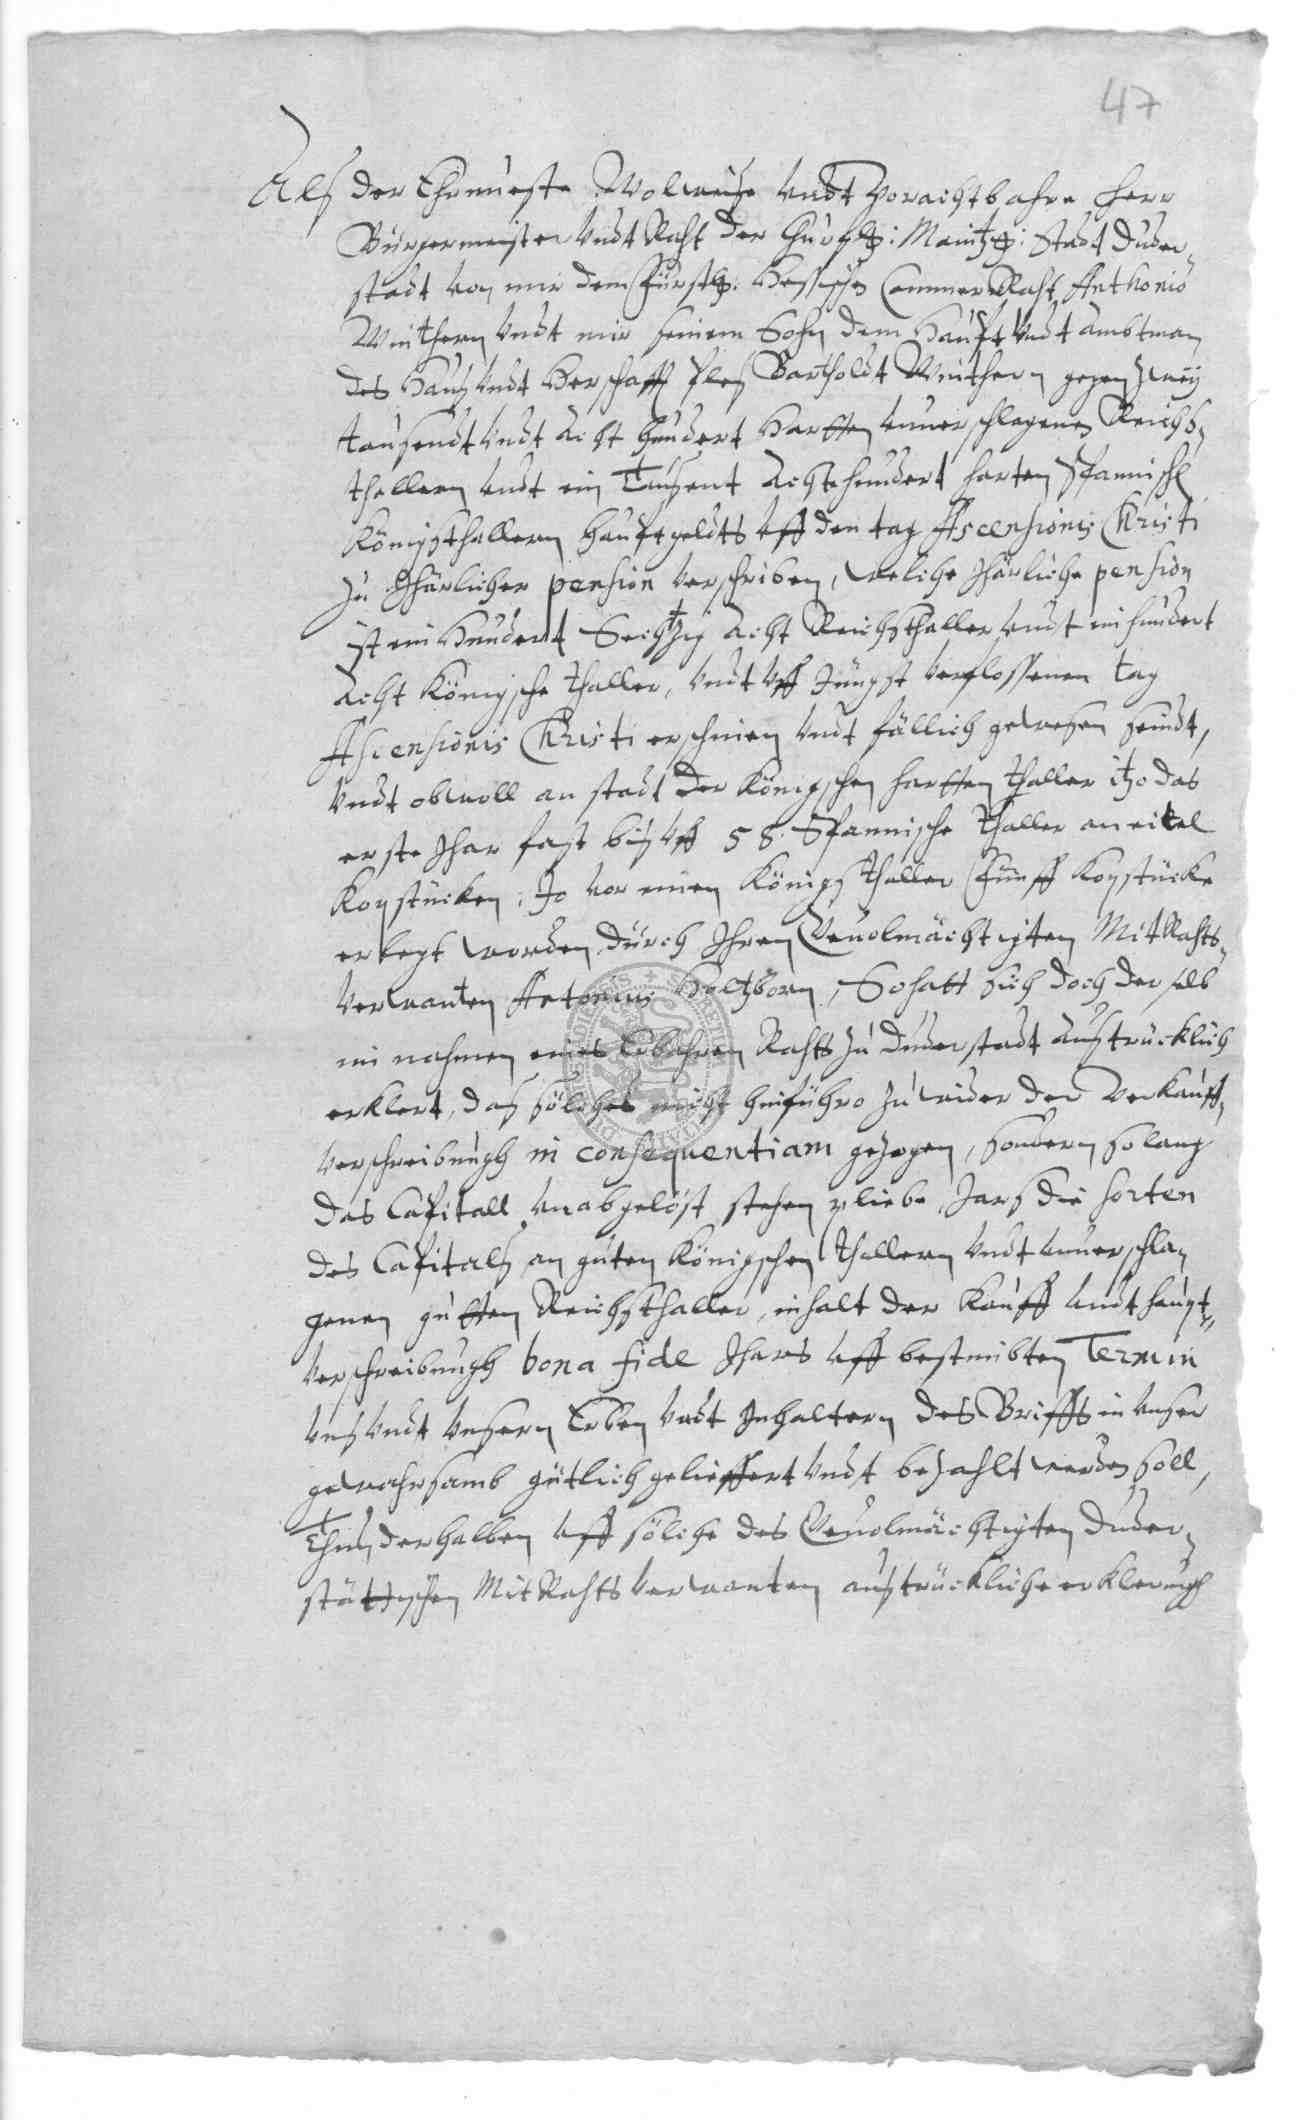 47
Als der Ehrnueste Wolweise Vndt Vorachtbahre Herr
Bürgermeister Vndt Raht der Churf: Maintz: Stadt Duder-
stadt von mir dem Fürstl: Hessischen Cammer Raht Anthonio
Winthern Vndt mir seinem Sohn dem Haupt Vndt Ambtman
des Hauß Vndt Herschafft Pless Bartholdt Winthern gegen Zweÿ
tausendt Vndt Acht Hundert Hartten vnuerschlagenen Reichs-
thallern Vndt ein Tausent Achtehundert harten Spannisch
Königsthallern Hauptgeldts Vff den tag Ascensionis Christi
zu Jhärlicher pension Verschriben, welche Jhärliche pension
ist ein Hundert Sechtzig Acht Reichsthaller Vndt ein hundert
Acht Königsche thaller, Vndt Vff Jüngst Verflossenen tag
Ascensionis Christi erschinen Vndt fällich gewesen seindt,
Vndt obwoll an stadt der Königschen hartten thaller itzo das
erste Jhar fast biß Vff 58. Spannische thaller an eitel
Kopstücken, Je vor einen Königsthaller Fünff Kopstücke
erlegt worden durch Ihren Gevolmächtigten MitRahts-
Verwanten Antonius Holtzborn, So hatt sich doch derselb
im nahmen eines Erbahren Rahts zu Duderstadt Außtrücklich
erklert, das sölches nicht hinführo zuwider der Verkauff-
Verschreibungh in consequentiam gezogen, sondern solang
das Capitall Vnabgelöst stehen pliebe, Jars die sorten
des Capitals an guten Königschen thallern Vndt Vnuerschla-
genen gutten Reichsthaller, inhalt der Kauff Vndt haupt-
Verschreibungh bona fide Jhars Vff bestimbten Termin
Vns Vndt Vnsern Erben Vndt Inhaltern des Briffs in Vnser
gewahrsamb gütlich gelieffert Vndt bezahlt werden soll,
Thun derhalben Vff sölche des Gevolmächtigten Duder-
stättischen MitRahtsVerwanten außtrückliche erklerungh